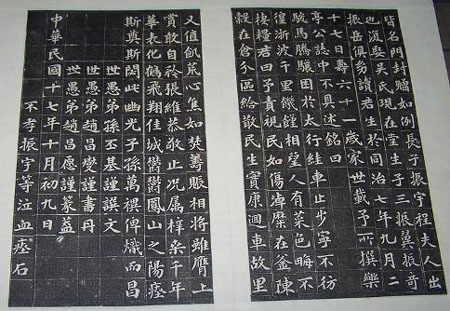 皆名門封贈如例長子振宇程夫人出
也澂娶吳氏現在堂生子三振翼振奇
振岳俱務讀君生於同治七年九月二
十七日壽六十一歲家世載予所撰樂
亭公誌中不具述銘曰
駿馬騰驤困於太行經車止步寧不彷
徨浙波千里餓饉相望人有菜色晦不
棲糧君曰予責視民如傷薄糜在釜陳
穀在倉分區給散民生實康迴車故里
又值飢荒心焦如焚籌賑相將雖膺上
賞敢自矜張維恭敬止况属梓桑千年
華表化鶴飛翔佳城鬱鬱鳳山之陽瘞
斯奠斯閟此幽光子孫萬禩俾熾而昌
世愚弟孫丕基謹譔文
世愚弟趙昌燮謹書丹
世愚弟趙昌愿謹篆蓋
中華民國十七年十月初九日
不孝振宇等泣血瘞石